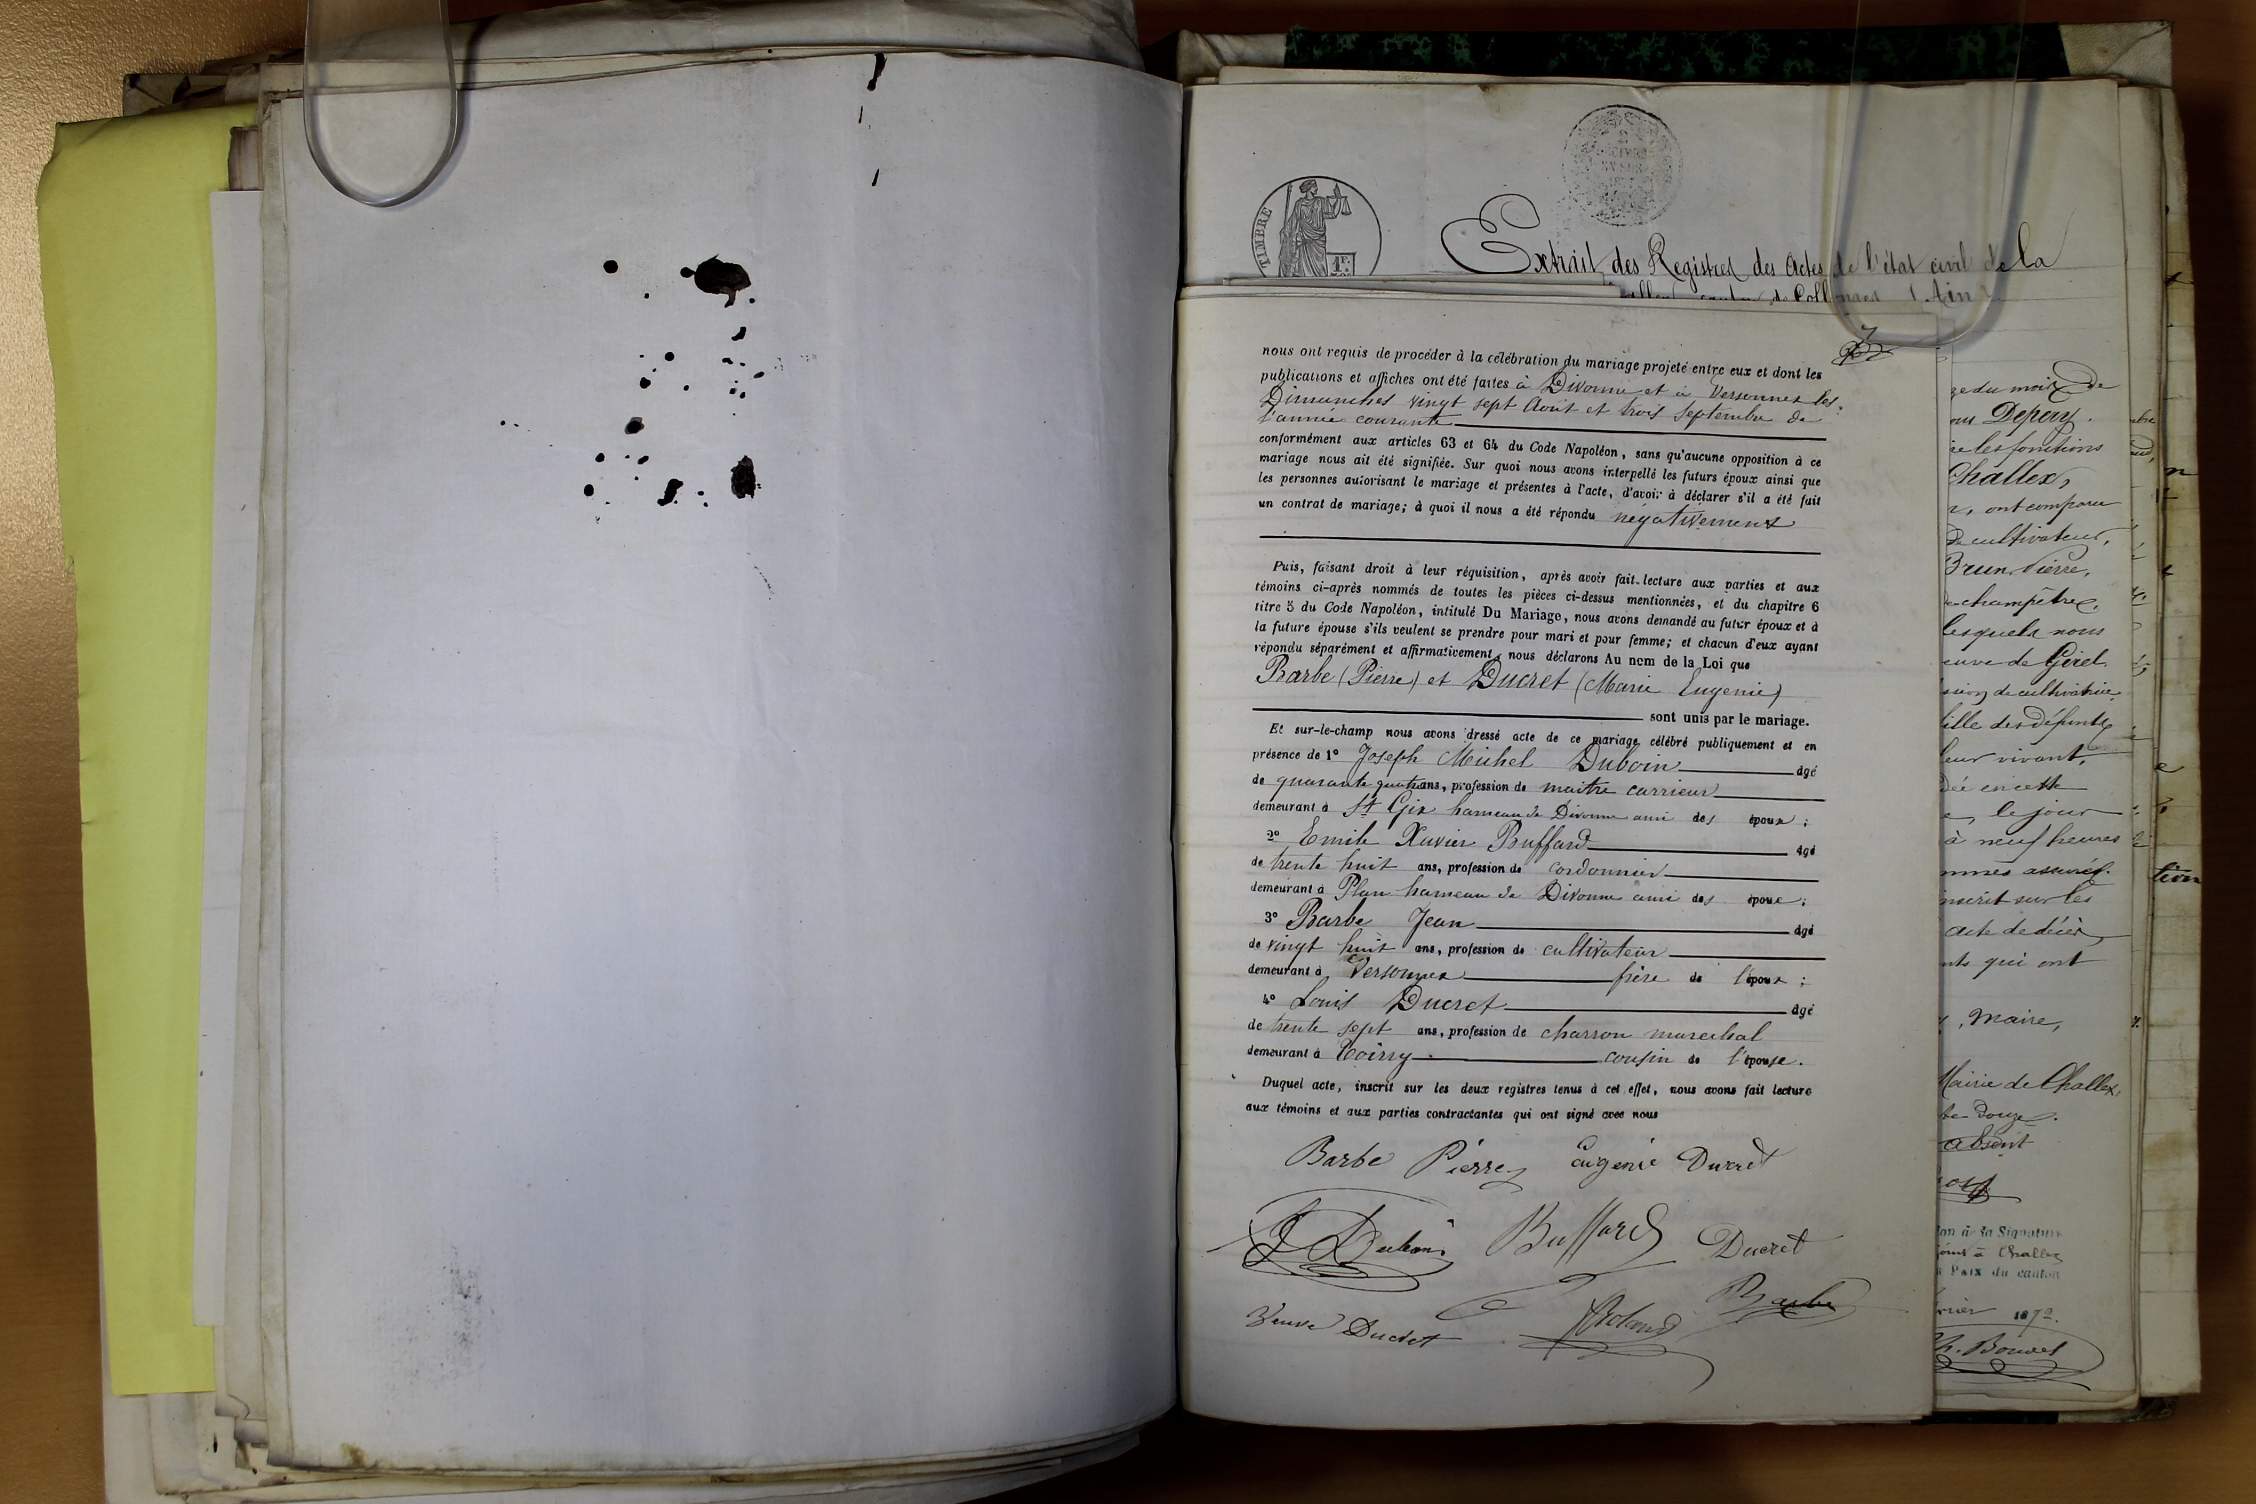 TIMBRE
1F.
Extrait des Registres des Actes de l'état civil de la
canton de Collonges (Ain)
nous ont requis de procéder à la célébration du mariage projeté entre eux et dont les
publications et affiches ont été faites à Divonne et à Versonnex les
Dimanches vingt sept Août et trois Septembre de
l'année courante
conformément aux articles 63 et 64 du Code Napoléon, sans qu'aucune opposition à ce
mariage nous ait été signifiée. Sur quoi nous avons interpellé les futurs époux ainsi que
les personnes autorisant le mariage et présentes à l'acte, d'avoir à déclarer s'il a été fait
un contrat de mariage; à quoi il nous a été répondu négativement
Puis, faisant droit à leur réquisition, après avoir fait lecture aux parties et aux
témoins ci-après nommés de toutes les pièces ci-dessus mentionnées, et du chapitre 6
titre 5 du Code Napoléon, intitulé Du Mariage, nous avons demandé au futur époux et à
la future épouse s'ils veulent se prendre pour mari et pour femme; et chacun d'eux ayant
répondu séparément et affirmativement, nous déclarons Au nom de la Loi que
Barbe (Pierre) et Ducret (Marie Eugenie)
sont unis par le mariage.
Et sur-le-champ nous avons dressé acte de ce mariage célébré publiquement et en
présence de 1° Joseph Michel Duboin âgé
de quarante quatre ans, profession de maître carrieur
demeurant à St Gix hameau de Divonne ami des époux ;
2° Emile Xavier Buffard âgé
de trente huit ans, profession de cordonnier
demeurant à Plan hameau de Divonne ami des époux ;
3° Barbe Jean âgé
de vingt huit ans, profession de cultivateur
demeurant à Versonnex frère de l'époux ;
4° Louis Ducret âgé
de trente sept ans, profession de charron marechal
demeurant à Thoiry cousin de l'épouse.
Duquel acte, inscrit sur les deux registres tenus à cet effet, nous avons fait lecture
aux témoins et aux parties contractantes qui ont signé avec nous
Barbe Pierre Eugenie Ducret
J Duboin Buffard Ducret
Veuve Ducret Roland Barbe
du mois de
Depery.
les fonctions
Challex,
, ont comparu
de cultivateur,
Brun Pierre,
champêtre,
lesquels nous
de Girel
de cultivatrice
fille des défunts
leur vivant,
en cette
, le jour
à neuf heures
assurés.
inscrit sur les
acte de décès
qui ont
, Maire,
Mairie de Challex,
douze.
absent
à la Signature
à Challex
Paix du canton
1872.
Ch. Bouvet
tion